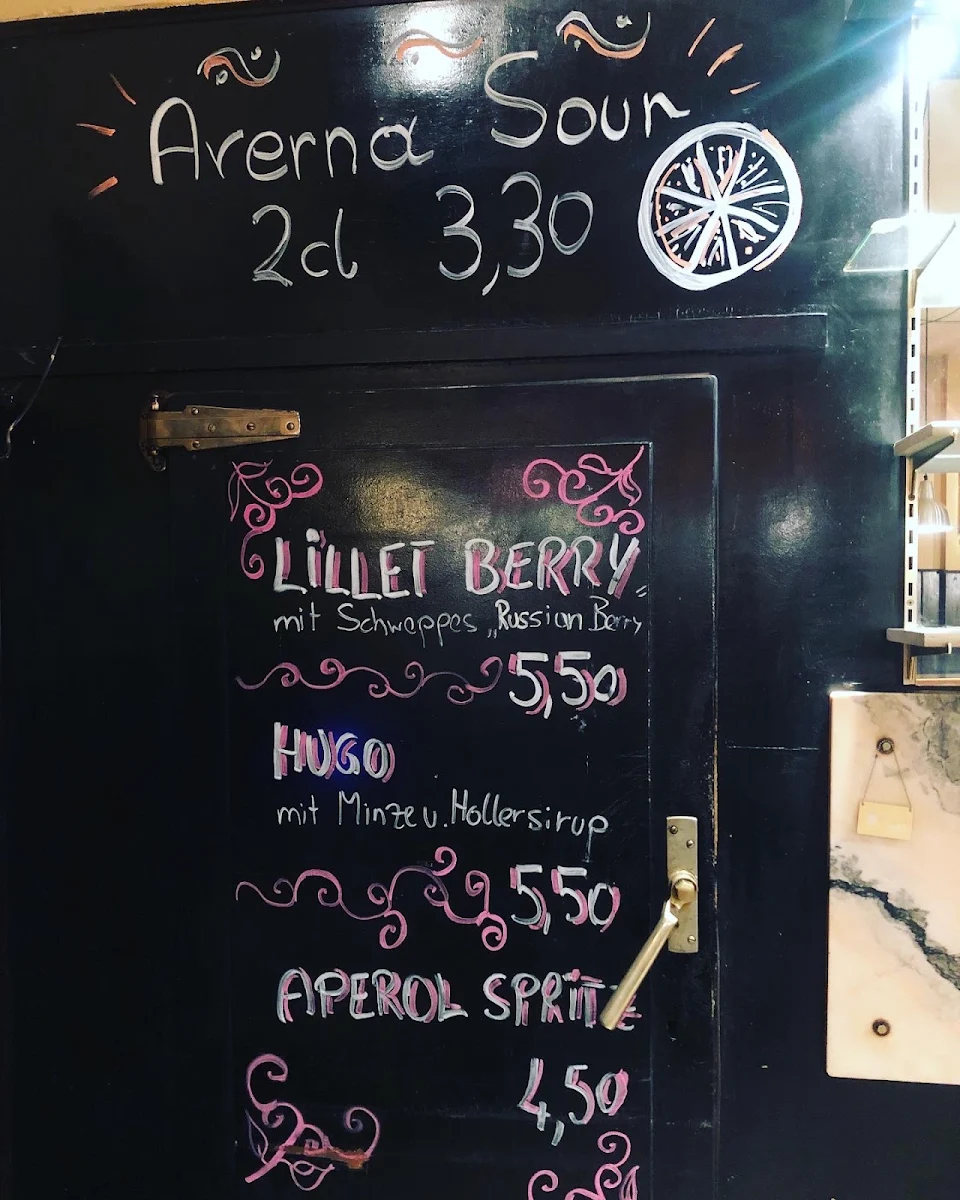 Averna Sour
2cl 3,30
LiLLET BERRY
mit Schweppes „Russian Berry
5,50
HUGO
mit Minze u. Hollersirup
5,50
APEROL SPRITZ
4,50